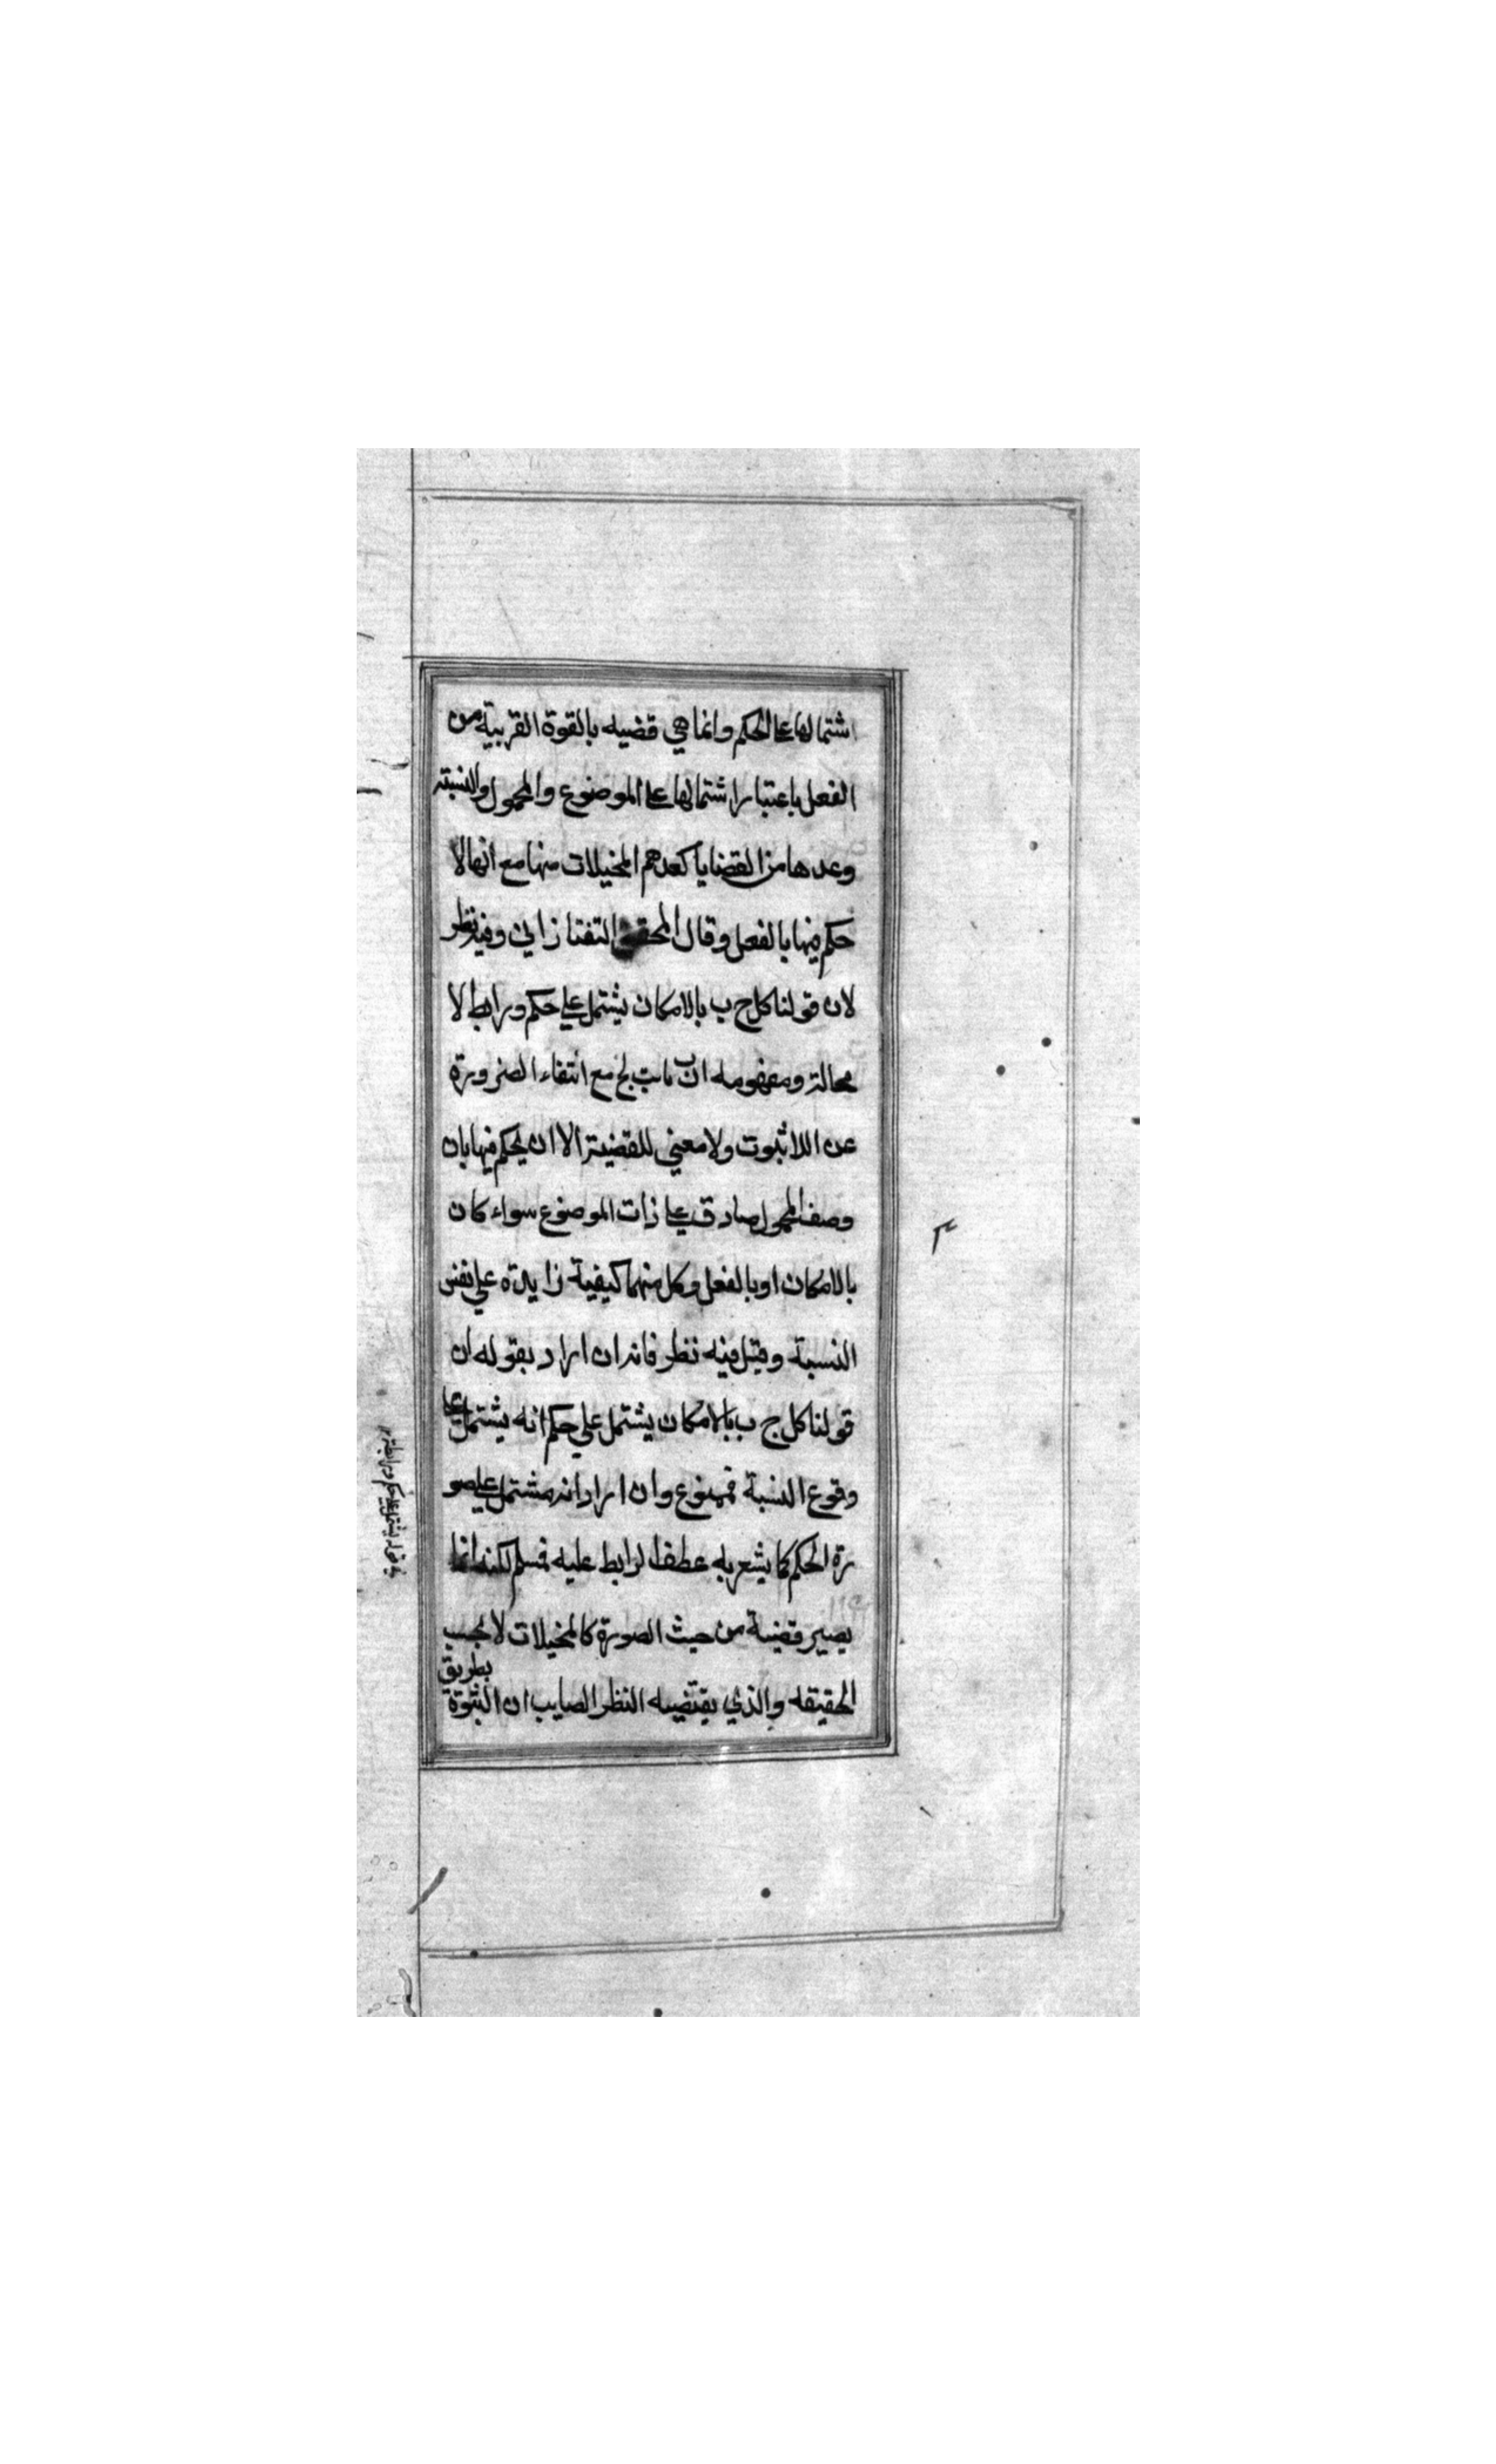 اشتمالها على الحكم وانما هي قضيه بالقوة القريبة من
الفعل باعتبار اشتمالها على الموضوع والمحمول والنسبة
وعدها من القضايا كعدهم المخيلات منها مع انها لا
حكم فيها بالفعل وقال المحقق التفتازاني وفيه نظر
لان قولنا كل ج ب بالامكان يشتمل علي حكم ورابط لا
محالة ومفهومه ان ب ثابت لج مع انتفاء الضرورة
عن اللاثبوت ولا معني للقضية الا ان يحكم فيها بان
وصف المحمول صادق علي ذات الموضوع سواء كان
بالامكان او بالفعل وكل منهما كيفية زايدة علي نفس
النسبة وقيل فيه نظر فانه ان اراد بقوله ان
قولنا كل ج ب بالامكان يشتمل علي حكم انه يشتمل على
وقوع النسبة فممنوع وان اراد انه مشتمل علي صو
رة الحكم كما يشعر به عطف الرابط عليه فمسلم لكنه انما
يصير قضية من حيث الصورة كالمخيلات لا بحسب
الحقيقه والذي يقتضيه النظر الصايب ان الثبوة
بطريق